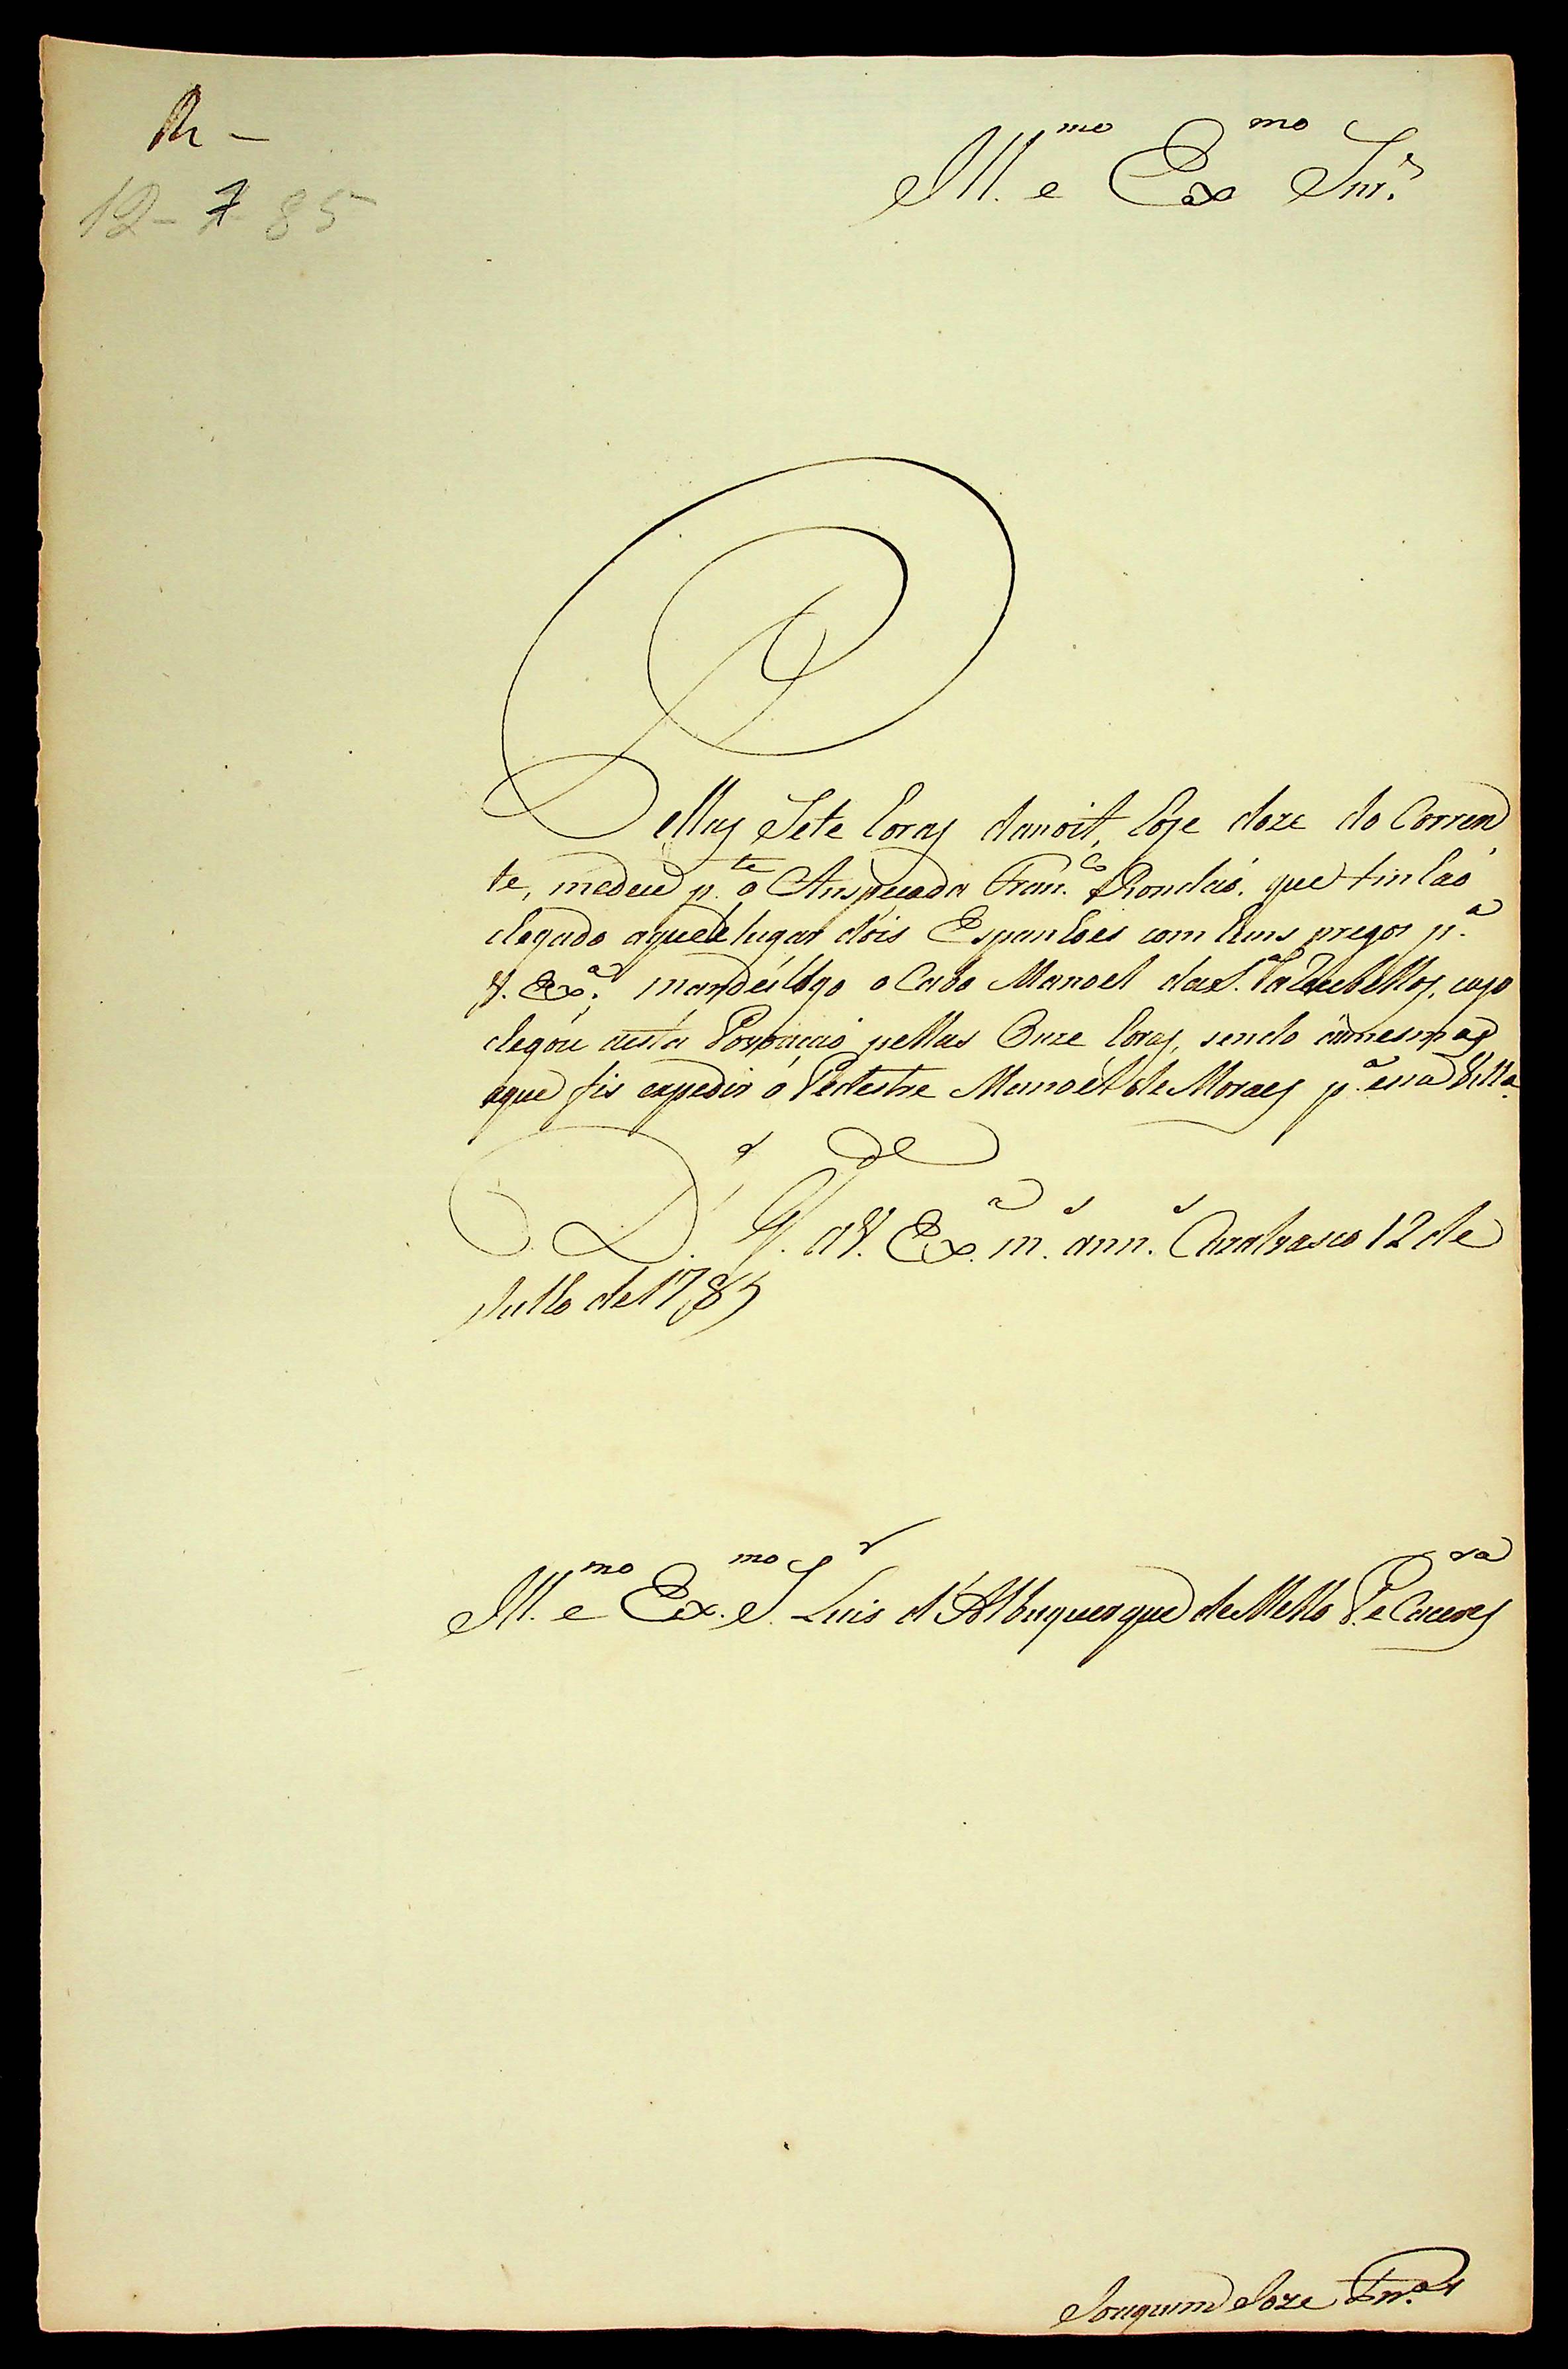 R -
12-7-85
Ill.mo e Ex.mo Snr.
Pellas Sete horas danoit, hoje doze do Corren
te, medeu p.te o Anspeçada Fran.co Rondaó. que tinhaó
chegado aquele lugar dóis Espanhoes com huns pregos p.a
V. Ex.a, mandeilógo o Cabo Manoel da S.a cujo
chegóu desta Povoaçaó pellas Onze horas, sendo asmesmas
aque fis expedir o Pedestre Manoel de Moraes p.a essa Villa.
D.s G.de a V. Ex.a m.s ann.s Cazalvasco 12 de
Julho de 1785
Ill.mo e Ex.mo S.r Luis d'Albuquerque de Mello P.ra e Caceres
Joaquim Joze